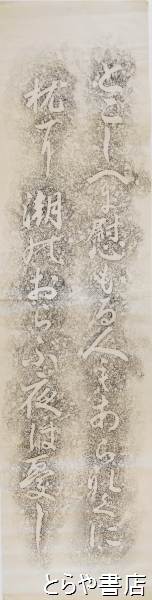 とこしへに慰もる人もあらなくに
枕に潮のおらぶ夜は憂し
とらや書店